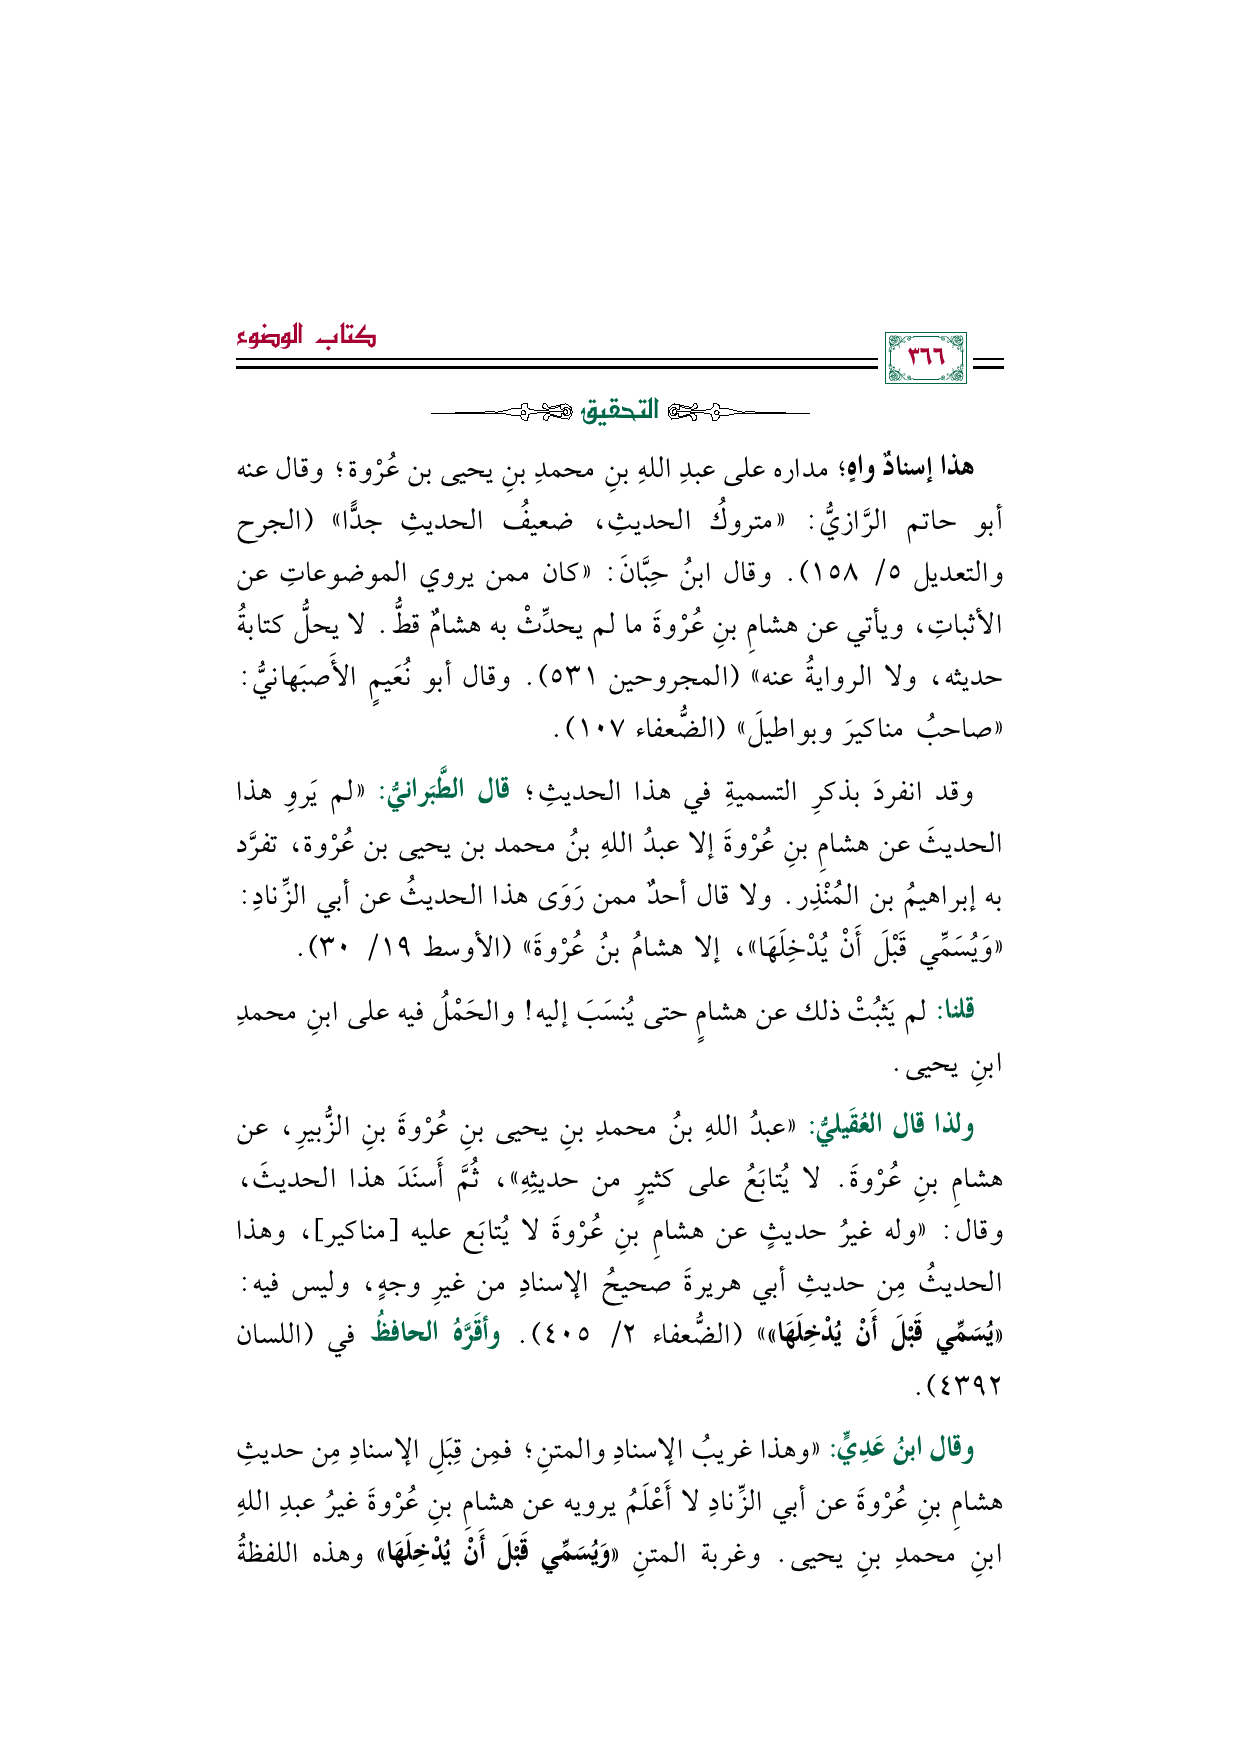 كتاب الوضوء
٣٦٦
التحقيق
هذا إسنادٌ واهٍ؛ مداره على عبدِ اللهِ بنِ محمدِ بنِ يحيى بن عُرْوة؛ وقال عنه
أبو حاتم الرَّازيُّ: «متروكُ الحديثِ، ضعيفُ الحديثِ جدًّا» (الجرح
والتعديل ٥/ ١٥٨). وقال ابنُ حِبَّانَ: «كان ممن يروي الموضوعاتِ عن
الأثباتِ، ويأتي عن هشامِ بنِ عُرْوةَ ما لم يحدِّثْ به هشامٌ قطُّ. لا يحلُّ كتابةُ
حديثه، ولا الروايةُ عنه» (المجروحين ٥٣١). وقال أبو نُعَيمٍ الأَصبَهانيُّ:
«صاحبُ مناكيرَ وبواطيلَ» (الضُّعفاء ١٠٧).
وقد انفردَ بذكرِ التسميةِ في هذا الحديثِ؛ قال الطَّبَرانيُّ: «لم يَروِ هذا
الحديثَ عن هشامِ بنِ عُرْوةَ إلا عبدُ اللهِ بنُ محمد بن يحيى بن عُرْوة، تفرَّد
به إبراهيمُ بن المُنْذِر. ولا قال أحدٌ ممن رَوَى هذا الحديثُ عن أبي الزِّنادِ:
«وَيُسَمِّي قَبْلَ أَنْ يُدْخِلَهَا»، إلا هشامُ بنُ عُرْوةَ» (الأوسط ١٩/ ٣٠).
قلنا: لم يَثبُتْ ذلك عن هشامٍ حتى يُنسَبَ إليه! والحَمْلُ فيه على ابنِ محمدِ
ابنِ يحيى.
ولذا قال العُقَيليُّ: «عبدُ اللهِ بنُ محمدِ بنِ يحيى بنِ عُرْوةَ بنِ الزُّبيرِ، عن
هشامِ بنِ عُرْوةَ. لا يُتابَعُ على كثيرٍ من حديثِهِ»، ثُمَّ أَسنَدَ هذا الحديثَ،
وقال: «وله غيرُ حديثٍ عن هشامِ بنِ عُرْوةَ لا يُتابَع عليه [مناكير]، وهذا
الحديثُ مِن حديثِ أبي هريرةَ صحيحُ الإسنادِ من غيرِ وجهٍ، وليس فيه:
«يُسَمِّي قَبْلَ أَنْ يُدْخِلَهَا»» (الضُّعفاء ٢/ ٤٠٥). وأقَرَّهُ الحافظُ في (اللسان
٤٣٩٢).
وقال ابنُ عَدِيٍّ: «وهذا غريبُ الإسنادِ والمتنِ؛ فمِن قِبَلِ الإسنادِ مِن حديثِ
هشامِ بنِ عُرْوةَ عن أبي الزِّنادِ لا أَعْلَمُ يرويه عن هشامِ بنِ عُرْوةَ غيرُ عبدِ اللهِ
ابنِ محمدِ بنِ يحيى. وغربة المتنِ «وَيُسَمِّي قَبْلَ أَنْ يُدْخِلَهَا» وهذه اللفظةُ